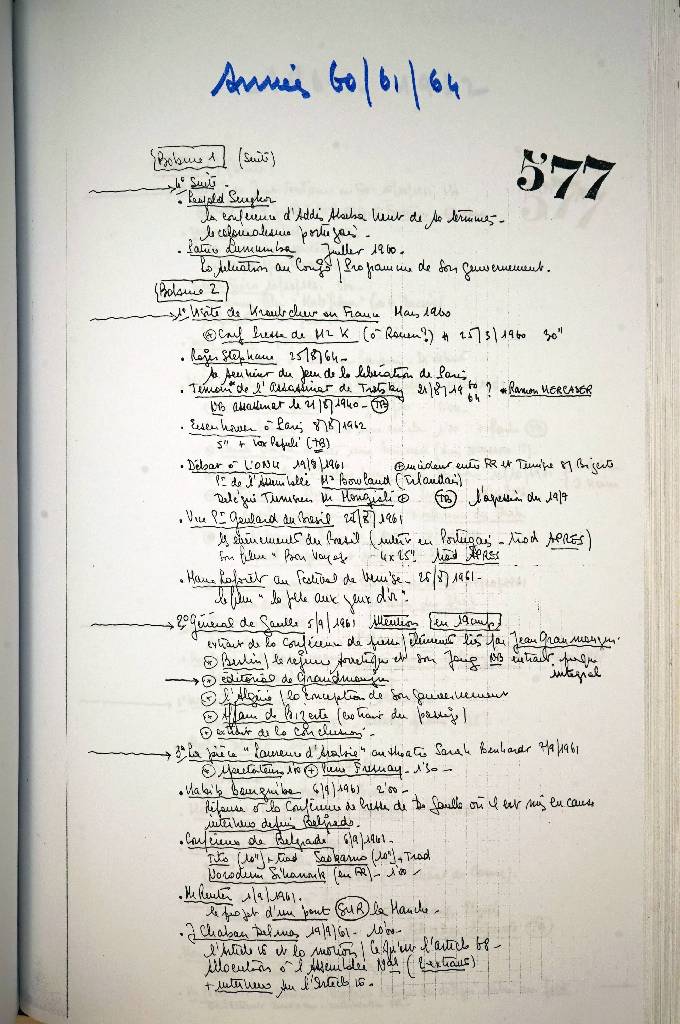 Années 60/61/64
577
Bobine 1 (Suite)
4° Suite.
. Léopold Senghor
la conférence d'Addis Abeba vient de se terminer -
le colonialisme portugais.
. Patrice Lumumba Juillet 1960.
La situation au Congo / Programme de son gouvernement.
Bobine 2
1° Visite de Kroutchev en France Mars 1960
Conf Presse de Mr K (à Rouen?) 25/3/1960 30"
. Roger Stéphane 25/8/64 -
le jour de la libération de Paris
. Témoin de l'Assassinat de Trotsky 21/8/19 60 64 ? * Ramon MERCADER
NB assassinat le 21/8/1940 - TB
. Eisenhower à Paris 8/8/1962
5" + Vox Populi (TB)
. Débat à l'ONU 19/8/1961 incident entre FR et Tunisie Bizerte
Pt de l'Assemblée Mr Bowland (Irlandais)
Délégué Tunisien Mr Mongi TB l'agression du 19/7
. Vice Pt Goulard du Brésil 1961
les événements du Brésil (en Portugais - trad APRES)
Son film " Bon Voyage 4x25" trad APRES
. Marie Laforêt au Festival de Venise - 1961 -
le film "la fille aux yeux d'or".
2° Général de Gaulle 5/9/1961 Attention en 19cm/s
extrait de la Conférence de presse / éléments liés par Jean Grandmougin.
Berlin / le régime soviétique et son Joug NB extrait presque
intégral
éditorial de Grandmougin
l'Algérie / la conception de son gouvernement
Affaire de Bizerte (extrait du passage)
extrait de la conclusion -
3° La pièce "Laurence d'Arabie" au théâtre Sarah Bernhardt 7/9/1961
Spectateurs 1'00 + Pierre Fresnay - 1'30 -
. Habib Bourguiba 6/9/1961 2'00 -
Réponse à la Conférence de Presse de De Gaulle où il est mis en cause
interview depuis Belgrade.
. Conférence de Belgrade 6/9/1961 -
Tito (10") + trad Soekarno (10") + Trad
Norodom Sihanouk (en FR) - 1'00 -
. Mr Reuter 1/9/1961.
le projet d'un pont SUR la Manche -
. J Chaban Delmas 19/9/61 - 10'00 -
l'Article 16 et la motion / l'article 68 -
Allocution à l'Assemblée Nale (2 extraits)
+ interview sur l'Article 16 -